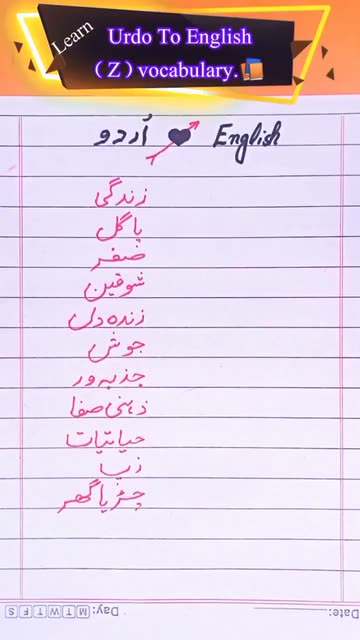 Learn
Urdo To English
( Z ) vocabulary.
اُردو English
زندگی
پاگل
صفر
شوقین
زندہ دل
جوش
جذبہ ور
ذہنی صفا
حیاتیات
زیبا
چڑیا گھر
Day: M T W T F S
Date: